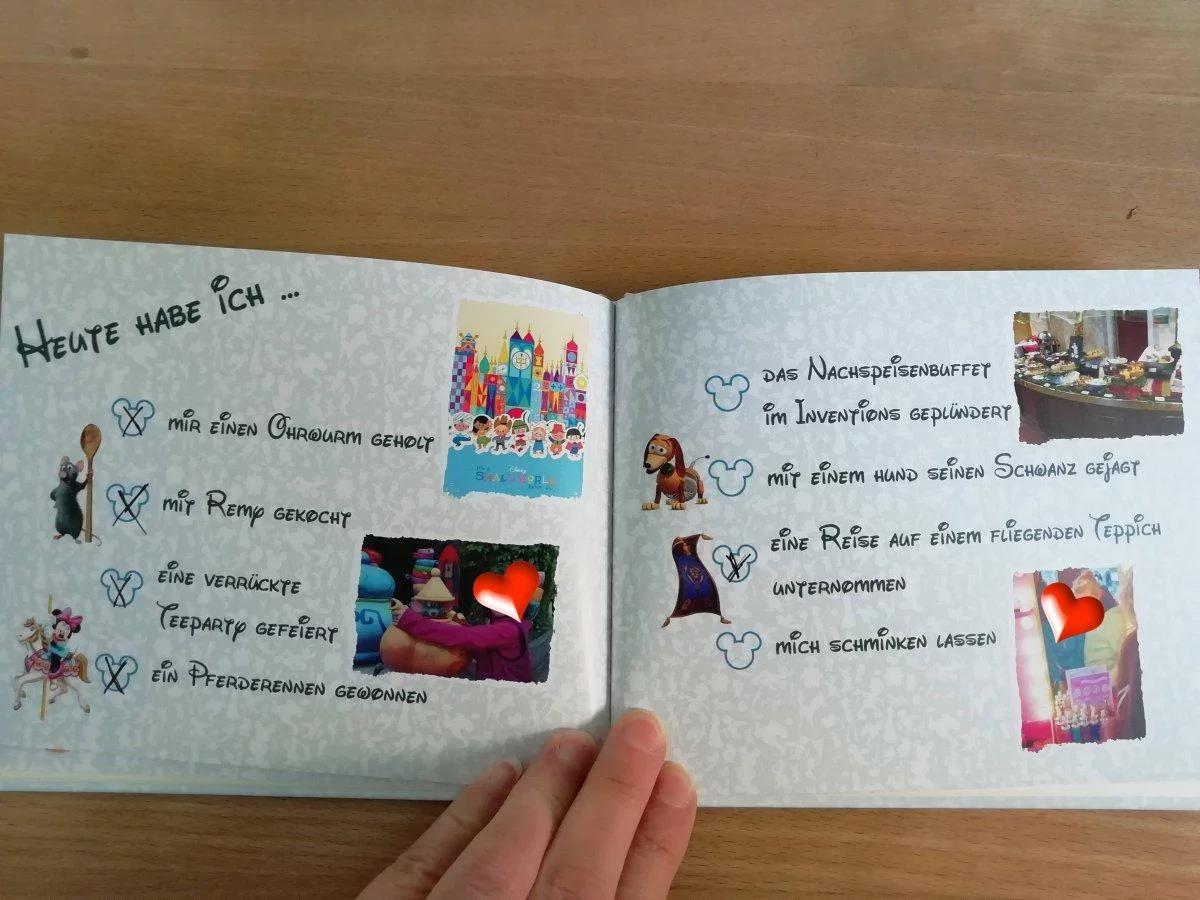 Heute habe ich ...
mir einen Ohrwurm geholt
mit Remy gekocht
eine verrückte
Teeparty gefeiert
ein Pferderennen gewonnen
Disney
das Nachspeisenbuffet
im Inventions geplündert
mit einem hund seinen Schwanz gejagt
eine Reise auf einem fliegenden Teppich
unternommen
mich schminken lassen